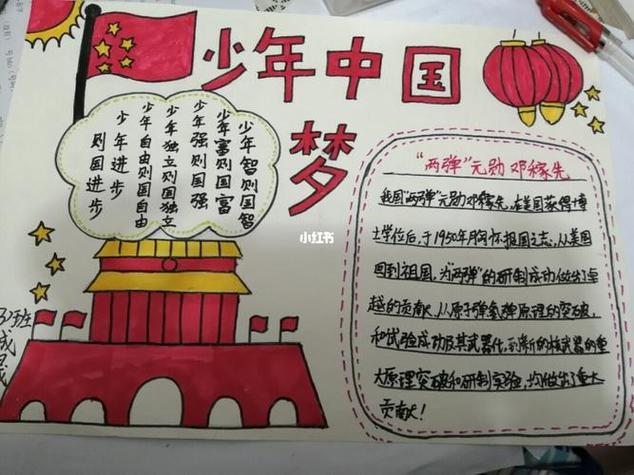 少年中国
梦
少年智则国智
少年富则国富
少年强则国强
少年独立则国独立
少年自由则国自由
少年进步
则国进步
"两弹"元勋邓稼先
我国"两弹"元勋邓稼先，在美国获得博
士学位后，于1950年胸怀报国之志，从美国
回到祖国，为"两弹"的研制成功做出了卓
越的贡献，从原子弹氢弹原理的突破，
和试验成功及其武器化，到新的核武器的重
大原理突破和研制实验，均做出了重大
贡献！
小红书